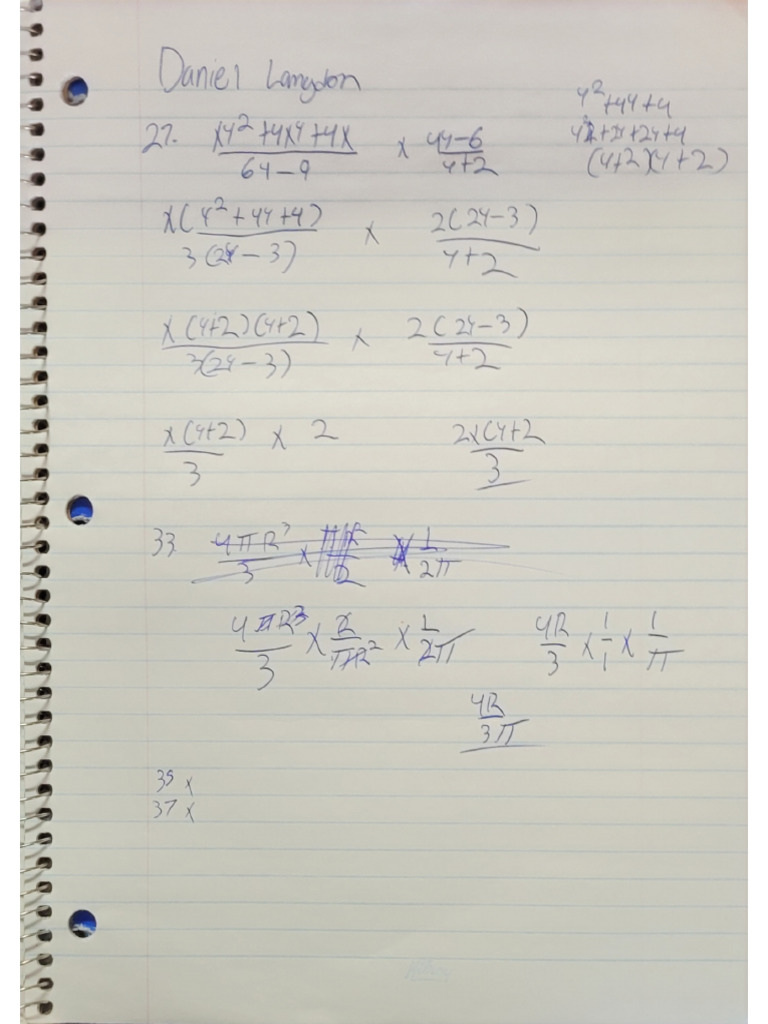 Daniel Langdon
y² + 4y + 4
y² + 2y + 2y + 4
(y+2)(y+2)
27. (xy² + 4xy + 4x)/(6y – 9) × (4y – 6)/(y + 2)
x(y² + 4y + 4)/3(2y – 3) × 2(2y – 3)/(y + 2)
x(y+2)(y+2)/3(2y – 3) × 2(2y – 3)/(y + 2)
x(y+2)/3 × 2    2x(y+2/3
33. 4πR³/3 × /2 × 1/2π
4πR³/3 × 2/πR² × 1/2π    4R/3 × 1/1 × 1/π
4R/3π
35 x
37 x